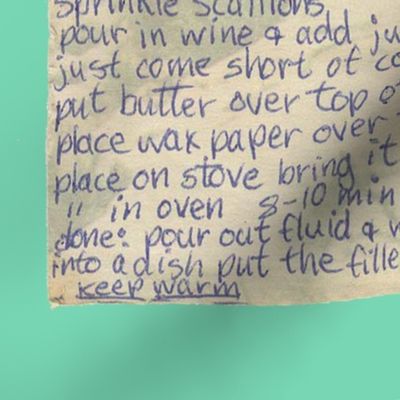 sprinkle scallions
pour in wine & add ju
just come short of co
put butter over top o
place wax paper over
place on stove bring it
" in oven 8-10 min
done: pour out fluid &
into a dish put the fille
keep warm